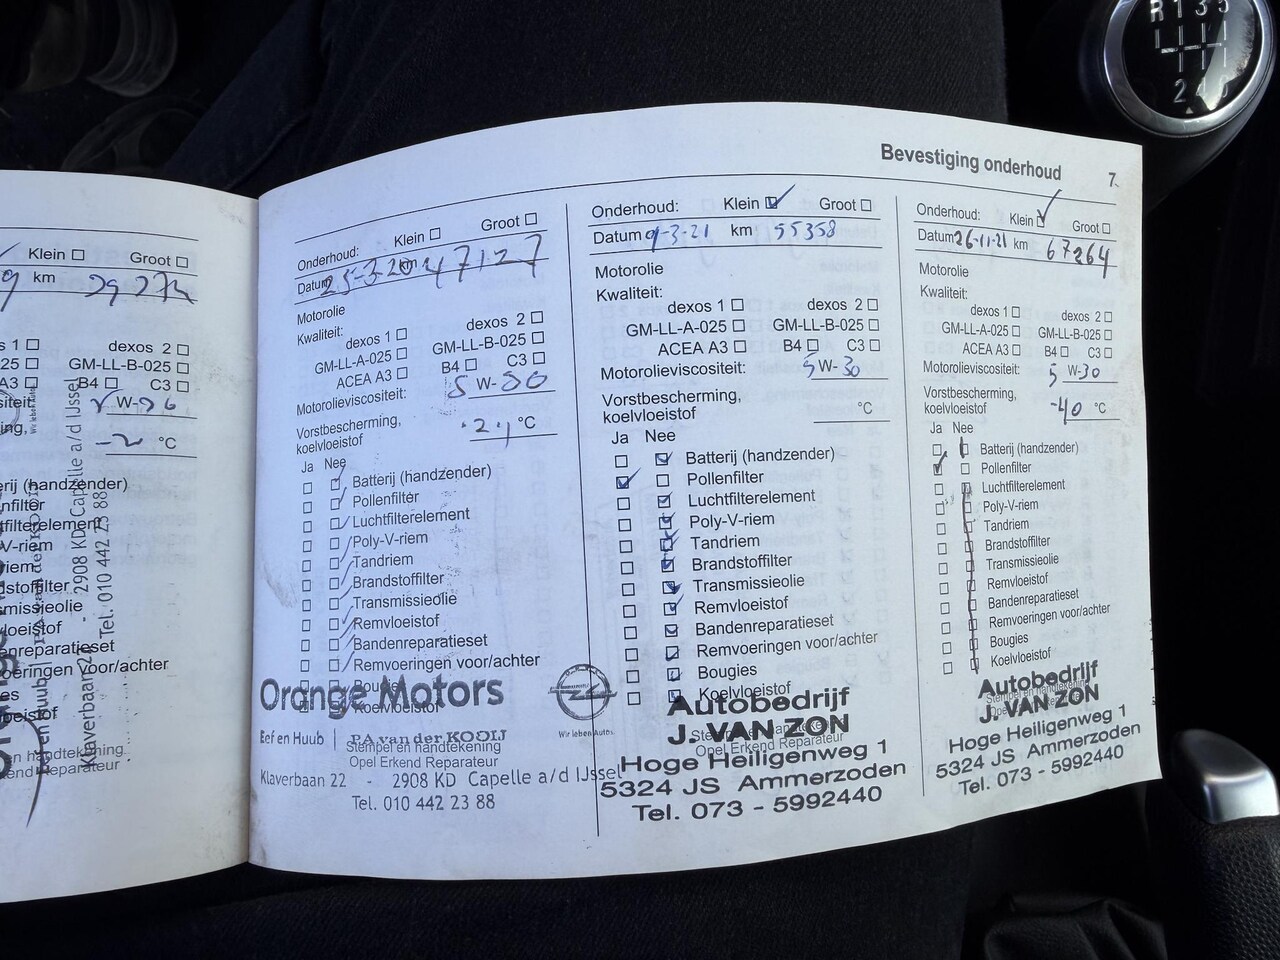 R 1 3 5
2 4 6
Bevestiging onderhoud 7
Klein Groot
9 km 29 27
s 1 dexos 2
25 GM-LL-B-025
A3 B4 C3
siteit: W-
ing, °C
erij (handzender)
nfilter
filterelement
V-riem
riem
dstoffilter
smissieolie
vloeistof
enreparatieset
oeringen voor/achter
es
oeistof
en handtekening
end Reparateur
Klaverbaan 22 - 2908 KD Capelle a/d IJssel
Tel. 010 442 23 88
Eef en Huub
Onderhoud: Klein Groot
Datum 25-3-20 km 47127
Motorolie
Kwaliteit:
dexos 1 dexos 2
GM-LL-A-025 GM-LL-B-025
ACEA A3 B4 C3
Motorolieviscositeit: 5 W-30
Vorstbescherming,
koelvloeistof °C
Ja Nee
Batterij (handzender)
Pollenfilter
Luchtfilterelement
Poly-V-riem
Tandriem
Brandstoffilter
Transmissieolie
Remvloeistof
Bandenreparatieset
Remvoeringen voor/achter
Bougies
Koelvloeistof
Orange Motors
Eef en Huub | P.A van der KOOIJ
Wir leben Autos.
Stempel en handtekening
Opel Erkend Reparateur
Klaverbaan 22 - 2908 KD Capelle a/d IJssel
Tel. 010 442 23 88
Onderhoud: Klein Groot
Datum 9-3-21 km 55358
Motorolie
Kwaliteit:
dexos 1 dexos 2
GM-LL-A-025 GM-LL-B-025
ACEA A3 B4 C3
Motorolieviscositeit: 5 W-30
Vorstbescherming,
koelvloeistof °C
Ja Nee
Batterij (handzender)
Pollenfilter
Luchtfilterelement
Poly-V-riem
Tandriem
Brandstoffilter
Transmissieolie
Remvloeistof
Bandenreparatieset
Remvoeringen voor/achter
Bougies
Koelvloeistof
Autobedrijf
J. VAN ZON
Stempel en handtekening
Opel Erkend Reparateur
Hoge Heiligenweg 1
5324 JS Ammerzoden
Tel. 073 - 5992440
Onderhoud: Klein Groot
Datum 26-11-21 km 67264
Motorolie
Kwaliteit:
dexos 1 dexos 2
GM-LL-A-025 GM-LL-B-025
ACEA A3 B4 C3
Motorolieviscositeit: 5 W-30
Vorstbescherming,
koelvloeistof -40 °C
Ja Nee
Batterij (handzender)
Pollenfilter
Luchtfilterelement
Poly-V-riem
Tandriem
Brandstoffilter
Transmissieolie
Remvloeistof
Bandenreparatieset
Remvoeringen voor/achter
Bougies
Koelvloeistof
Autobedrijf
Stempel en handtekening
J. VAN ZON
Hoge Heiligenweg 1
5324 JS Ammerzoden
Tel. 073 - 5992440